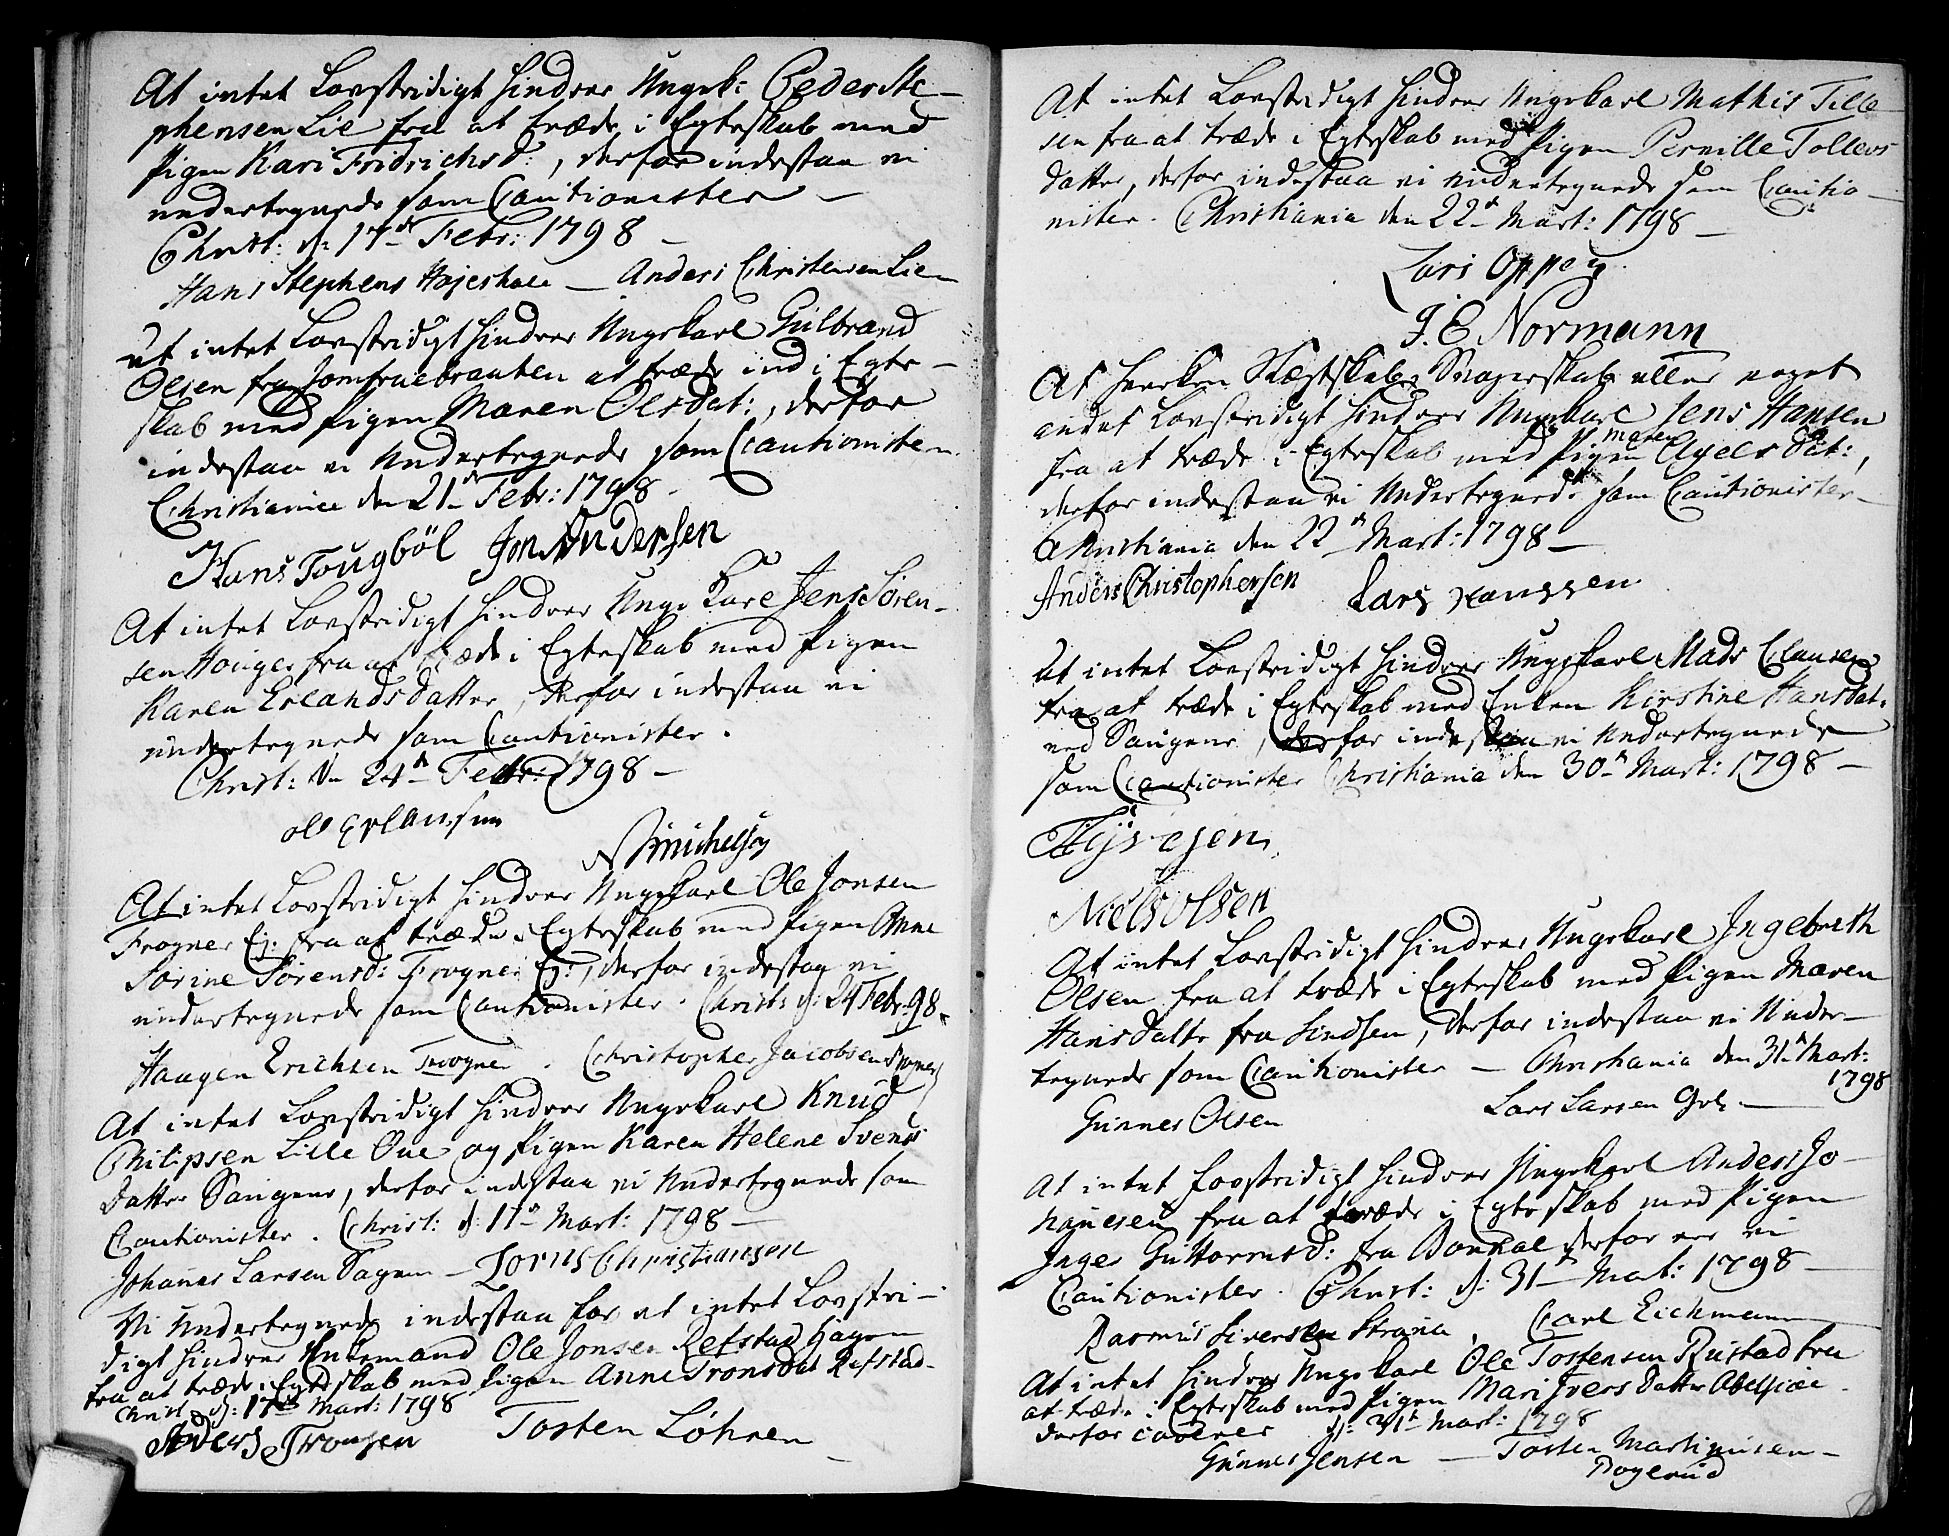 At intet Lovstridigt hindrer Ungk: Peder Ste-
phensen Lie fra at træde i Egteskab med
Pigen Kari Fridrichsd:, derfor indestaa vi
undertegnede som Cautionister —
Christ: d: 17de Febr: 1798 —
Hans Stephens — Anders Christensen Lie
At intet Lovstridigt hindrer Ungekarl Gulbrand
Olsen fra Jomfruebraaten at træde ind i Egte-
skab med Pigen Maren Olsdat:, derfor
indestaa vi Undertegnede som Cautionister
Christiania den 21de Febr: 1798 -
Hans Tougböl Jon Andersen
At intet Lovstridigt hindrer Unge Karl Jens Sören-
sen Houger fra at træde i Egteskab med Pigen
Karen Erlands datter, derfor indestaa vi
undertegnede som Cautionister.
Christ: den 24de Febr: 1798 —
ole Erlansen
At intet Lovstridigt hindrer Ungekarl Ole Jonsen
Frogner Ej: fra at træde i Egteskab med Pigen Anne
Sorine Sörensd: Frogner Ej:, derfor indestaa vi
undertegnede som Cautionister. Christ: d: 24 Febr: 98.
Haagen Erichsen Frogner. Christopher Jacobsen Frogner
At intet Lovstridigt hindrer Ungekarl Knud
Philipsen Lille Öue og Pigen Karen Helene Svends
datter Saugene, derfor indestaa vi Undertegnede som
Cautionister. Christ: d: 17de Mart: 1798 —
Johanes Larsen Sagen — Christiansen
Vi Undertegnede indestaa for at intet Lovstri-
digt hindrer Enkemand Ole Jonsen Refstad hagen
fra at træde i Egteskab med Pigen Anne Tronsdat Refstad-
Christ d: 17de Mart: 1798
Anders Tronsen Tosten Löhren —
At intet Lovstridigt hindrer Ungekarl Mathis Tille-
sen fra at træde i Egteskab med Pigen Pernille Tollevs
datter, derfor indestaa vi undertegnede som Cautio-
nister. Christiania den 22de Mart: 1798 —
Lars Oppeg
J. E Normann
At hverken Slægtskab, Svogerskab eller noget
andet Lovstridigt hindrer Ungekarl Jens Hansen
fra at træde i Egteskab med Pigen maren Agels dat:,
derfor indestaa vi Undertegnede som Cautionister-
Christiania den 22de Mart: 1798 —
Anders Christophersen Lars Hanssen
At intet Lovstridigt hindrer Ungekarl Mads Clausen
fra at træde i Egteskab med Enken Kirstine Hansdat:
ved Saugene, derfor indestaa vi Undertegnede
som Cautionister Christiania den 30de Mart: 1798 —
Niels olsen
At intet Lovstridigt hindrer Ungekarl Ingebreth
Olsen fra at træde i Egteskab med Pigen Maren
Hans datter fra Lindsen, derfor indestaa vi Under-
tegnede som Cautionister — Christiania den 31te Mart:
1798
Gunner Olsen Lars Larsen —
At intet Lovstridigt hindrer Ungekarl Anders Jo-
hanesen fra at træde i Egteskab med Pigen
Inger Guttormsd: fra derfor ere vi
Cautionister. Christ: d: 31te Mart: 1798 —
Rasmus Siversen Strana, Carl Eichmann
At intet hindrer Ungekarl Ole Tostensen Rustad fra
at træde i Egteskab med Pigen Mari Ivers datter
derfor caverer d: 31te Mart: 1798
Gunner Jensen — Tosten Martinusen —
Bogerud